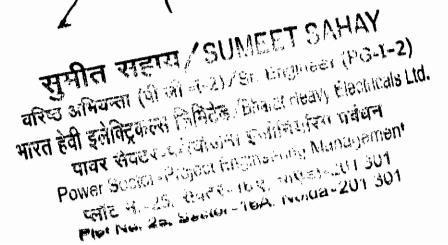 सुमीत सहाय / SUMEET SAHAY
वरिष्ठ अभियन्ता (पी जी -I-2) / Sr. Engineer (PG-I-2)
भारत हेवी इलेक्ट्रिकल्स लिमिटेड / Bharat Heavy Electricals Ltd.
पावर सेक्टर प्रबंधन
Power Sector-Project Engineering Management
प्लॉट नं.-25, सेक्टर-16ए, -201 301
Plot No. 25, Sector-16A, Noida-201 301